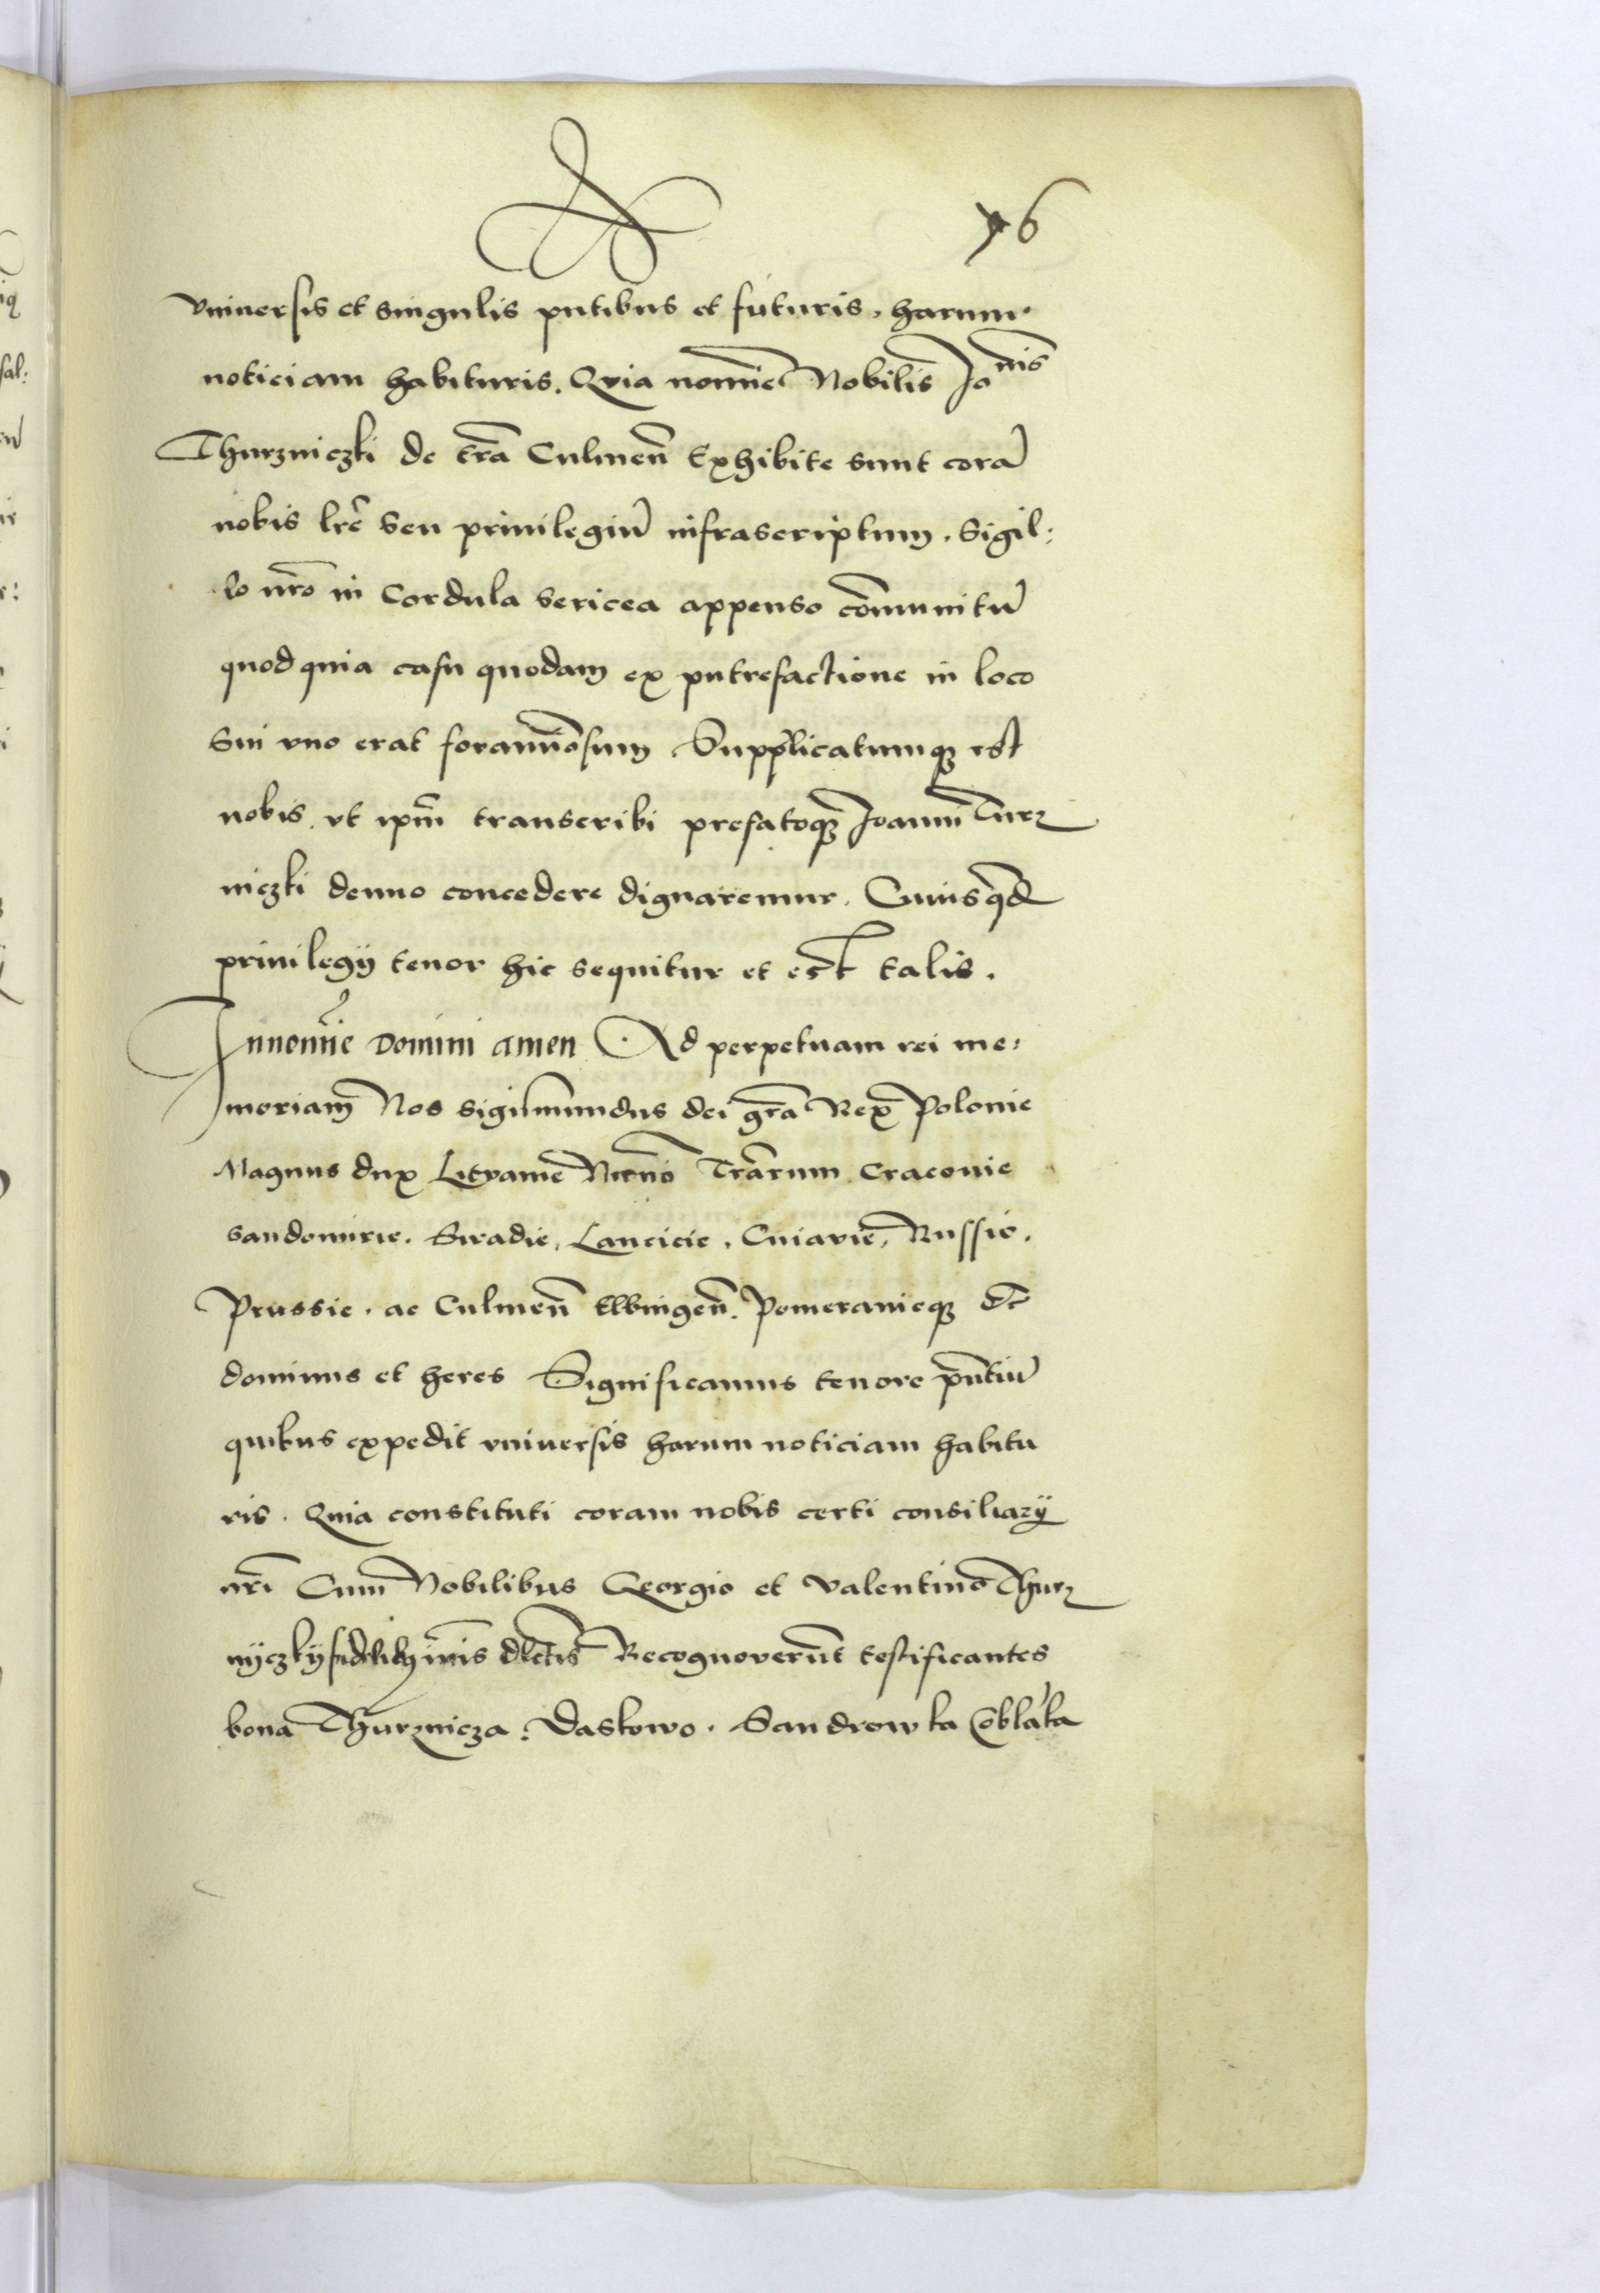 76
vniuersis et singulis pntibus et futuris, harum
noticiam habituris. Quia nomine Nobilis Jo nis
Thurzniczki de tra Culmen Exhibite sunt cora
nobis lre seu priuilegiu infrascriptum. Sigil:
lo nro in Cordula sericea appenso comunitu
quod quia casu quodam ex putrefactione in loco
sui vno erat foraminosum Supplicatumq est
nobis vt ipm transcribi prefatoq Joanni Turz
niczki denuo concedere dignaremur. Cuiusqd
priuilegij tenor hic sequitur et est talis.
In nomine Domini amen Ad perpetuam rei me:
moriam Nos Sigismundus dei gra Rex Polonie
Magnus dux Lituanie Necno Trarum Cracouie
Sandomirie. Siradie, Lancicie, Cuiauie, Russie.
Prussie. ac Culmen Elbingen. Pomeranieq &c
dominus et heres Significamus tenore pntiu
quibus expedit vniuersis harum noticiam habitu
ris. Quia constituti coram nobis certi consiliarij
nri Cum Nobilibus Georgio et Valentino Thurz
nyczky fidelib nris dlctis Recognouerunt testificantes
bona Thurznicza. Daskowo. Sandrowka oblata